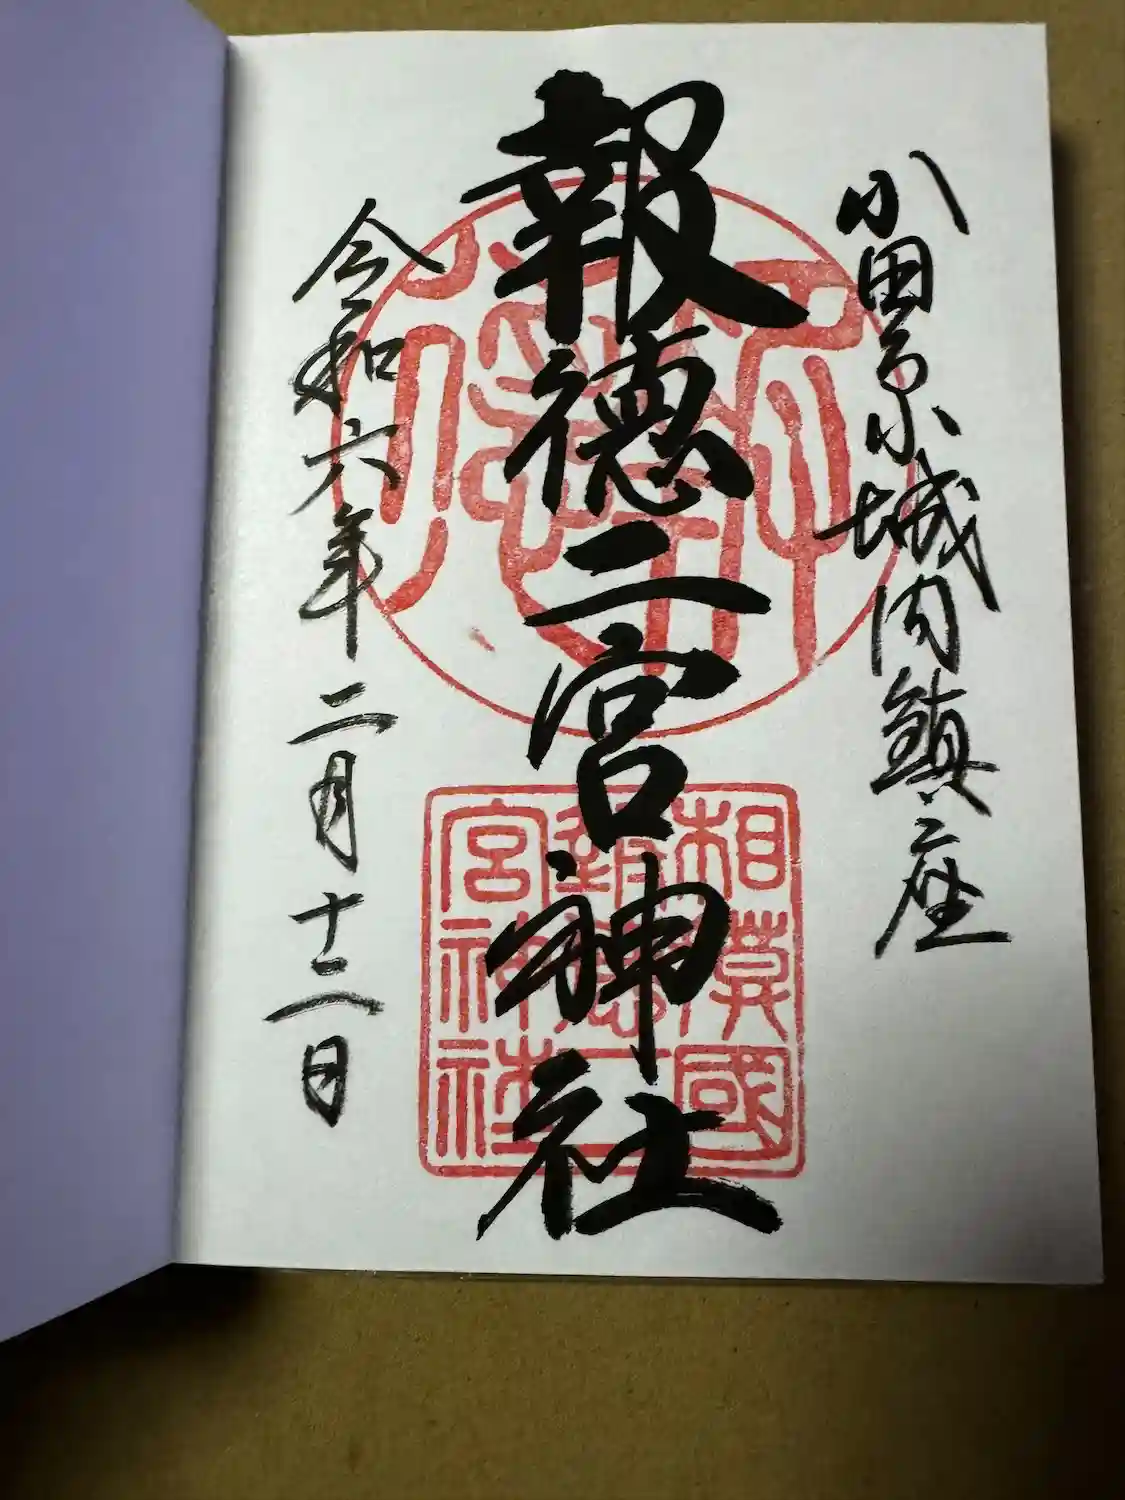 小田原城内鎮座
報徳二宮神社
令和六年二月十二日
相模國
報徳二
宮神社